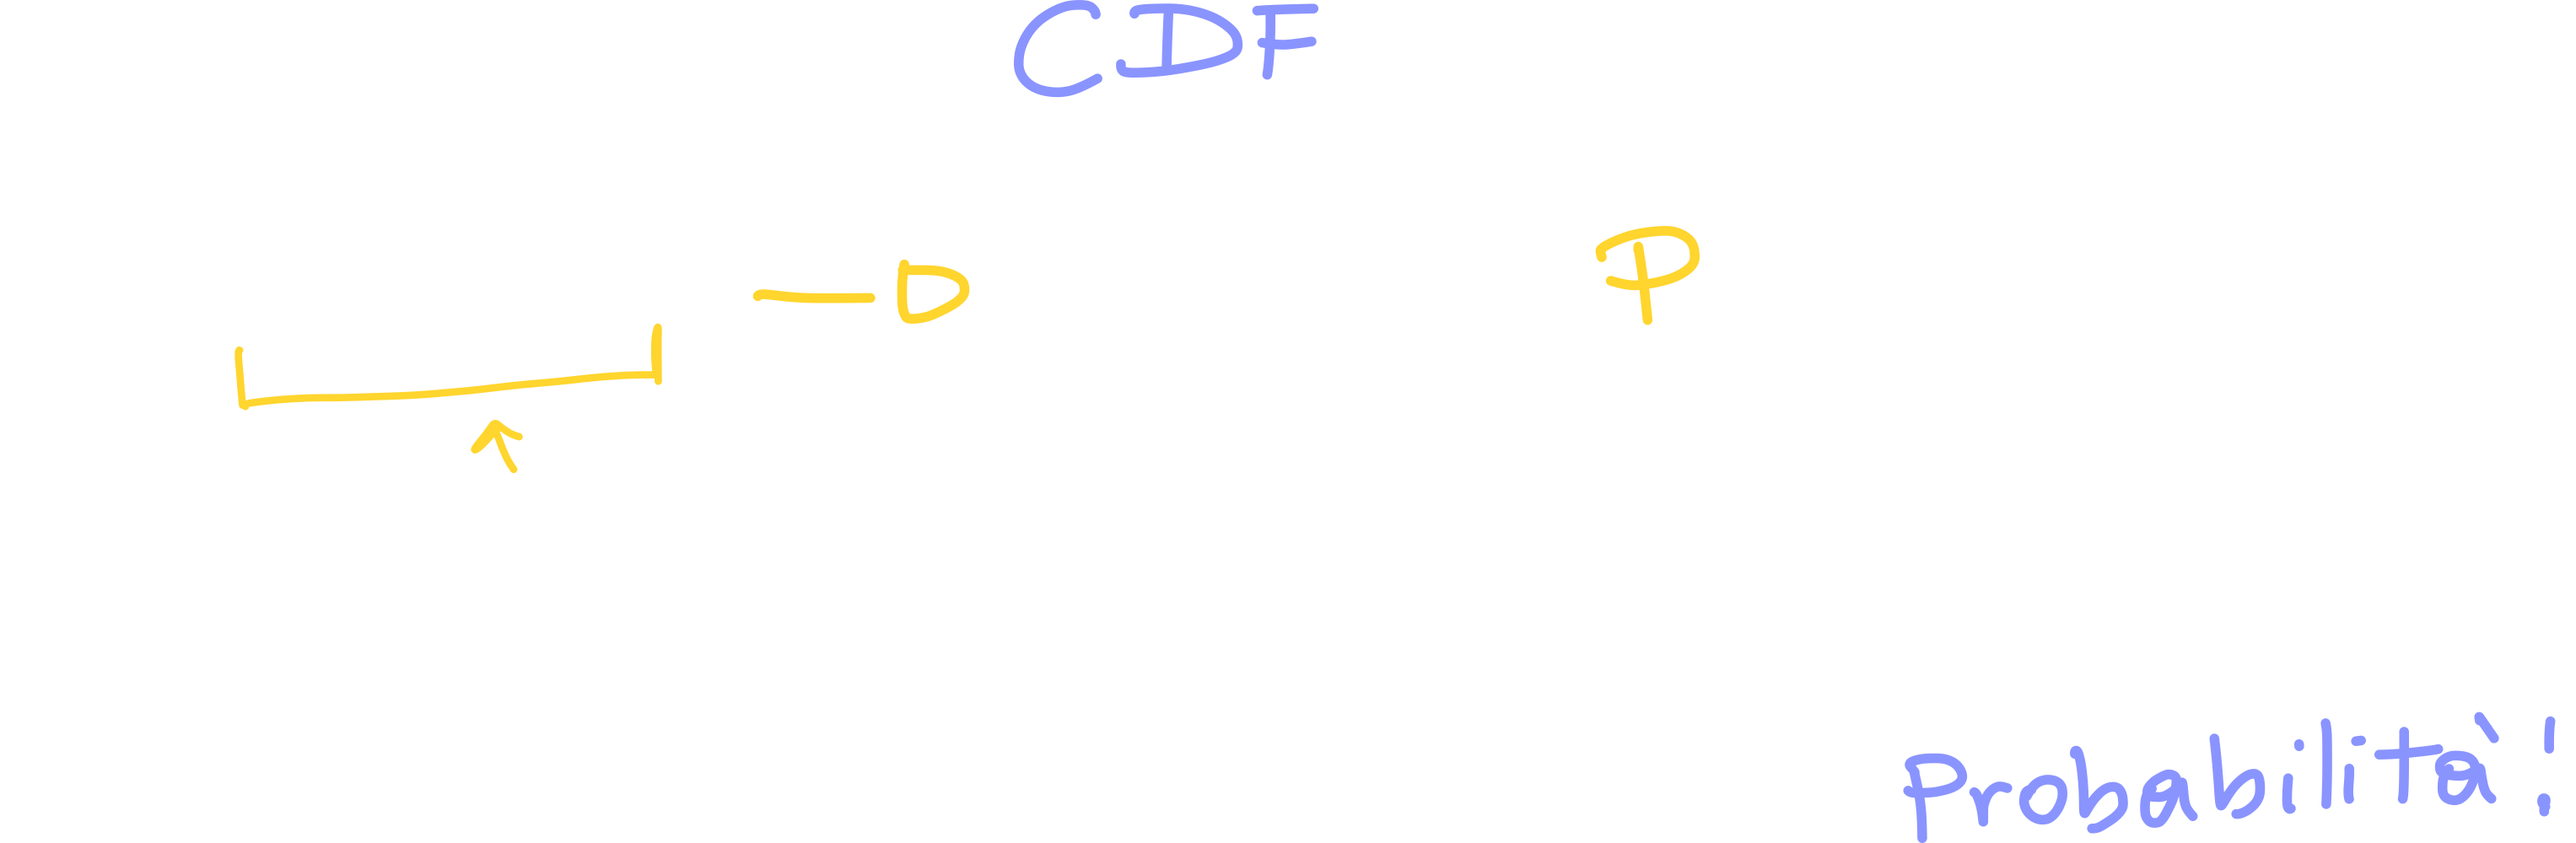 CDF
P
Probabilità!